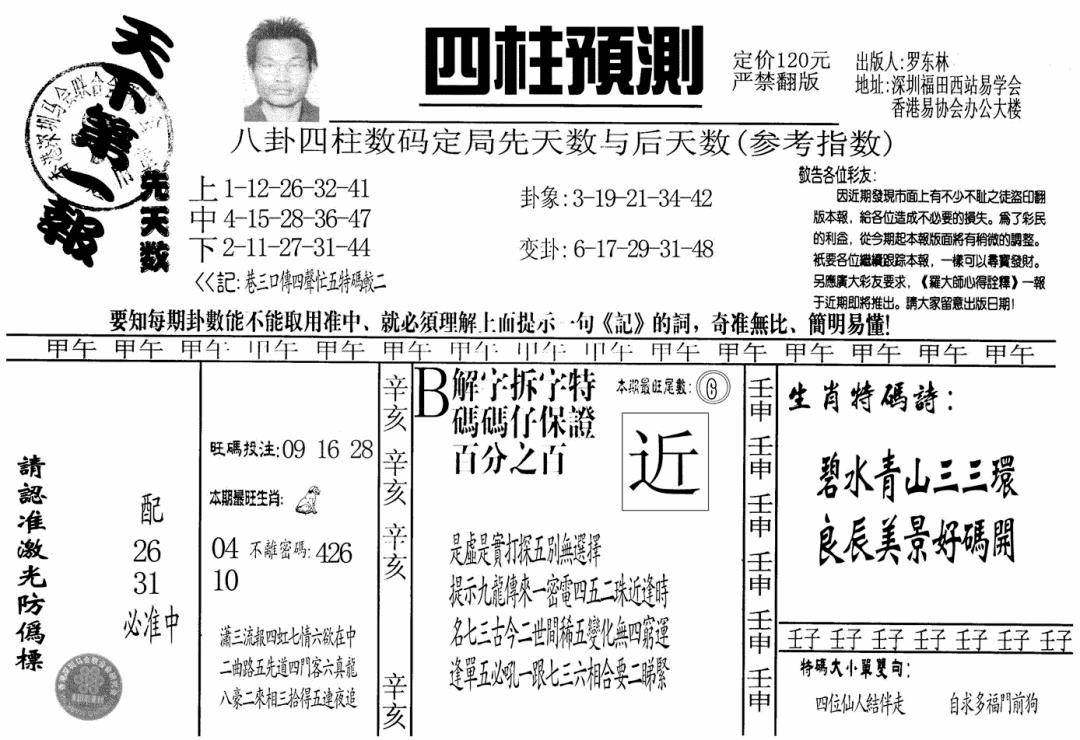 天下第一報
四柱預測
定价120元
严禁翻版
出版人:罗东林
地址:深圳福田西站易学会
香港易协会办公大楼
八卦四柱数码定局先天数与后天数(参考指数)
先天数
上 1-12-26-32-41
中 4-15-28-36-47
下 2-11-27-31-44
卦象:3-19-21-34-42
变卦:6-17-29-31-48
<<記:巷三口傳四聲忙五特碼較二
敬告各位彩友:
因近期發現市面上有不少不耻之徒盜印翻
版本報,給各位造成不必要的損失。爲了彩民
的利益,從今期起本報版面將有稍微的調整。
衹要各位繼續跟踪本報,一樣可以尋寶發財。
另應廣大彩友要求,《羅大師心得詮釋》一報
于近期即將推出。請大家留意出版日期!
要知每期卦數能不能取用准中、就必須理解上面提示一句《記》的詞,奇准無比、簡明易懂!
甲午 甲午 甲午 甲午 甲午 甲午 甲午 甲午 甲午 甲午 甲午 甲午 甲午 甲午 甲午
請認准激光防僞標
配
26
31
必准中
旺碼投注:09 16 28
本期最旺生肖:
04 不離密碼:426
10
瀟三流報四虹七情六欲在中
二曲路五先道四門客六真龍
八豪二來相三拾得五連夜追
辛亥
辛亥
辛亥
辛亥
B解字拆字特
碼碼仔保證
百分之百
本期最旺尾數:6
近
是虛是實打探五別無選擇
提示九龍傳來一密電四五二珠近逢時
名七三古今二世間稀五變化無四窮運
逢單五必吼一跟七三六相合要二睇緊
壬申
壬申
壬申
壬申
壬申
壬申
生肖特碼詩:
碧水青山三三環
良辰美景好碼開
壬子 壬子 壬子 壬子 壬子 壬子 壬子
特碼大小單雙句:
四位仙人結伴走 自求多福門前狗